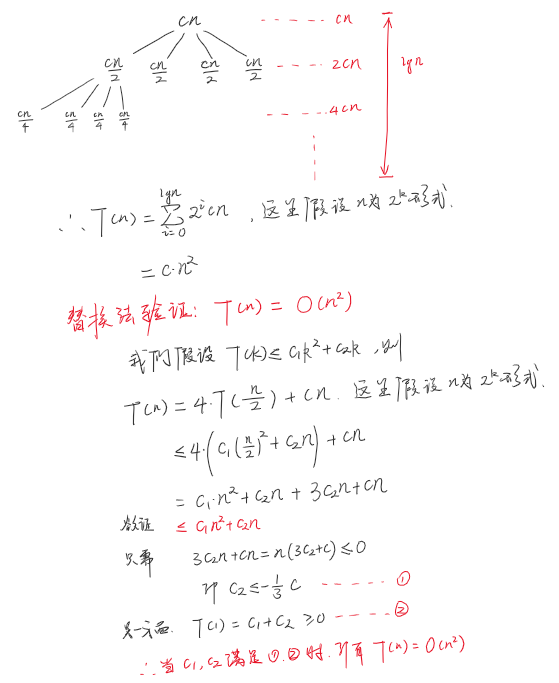 cn ------ cn
cn/2 cn/2 cn/2 cn/2 ---- 2cn lgn
cn/4 cn/4 cn/4 cn/4 ---- 4cn
∴ T(n) = ∑_{i=0}^{lgn} 2^i cn , 这里假设 n为 2^k形式.
= c·n²
替换法验证: T(n) = O(n²)
我们假设 T(k) ≤ c₁k² + c₂k , 则
T(n) = 4·T(n/2) + cn. 这里假设 n为 2^k形式.
≤ 4·(c₁(n/2)² + c₂n) + cn
= c₁·n² + c₂n + 3c₂n + cn
欲证 ≤ c₁n² + c₂n
只需 3c₂n + cn = n(3c₂+c) ≤ 0
即 c₂ ≤ -1/3 c ------ ①
另一方面. T(1) = c₁ + c₂ ≥ 0 ----- ②
∴ 当 c₁, c₂ 满足 ①.② 时. 即有 T(n) = O(n²)